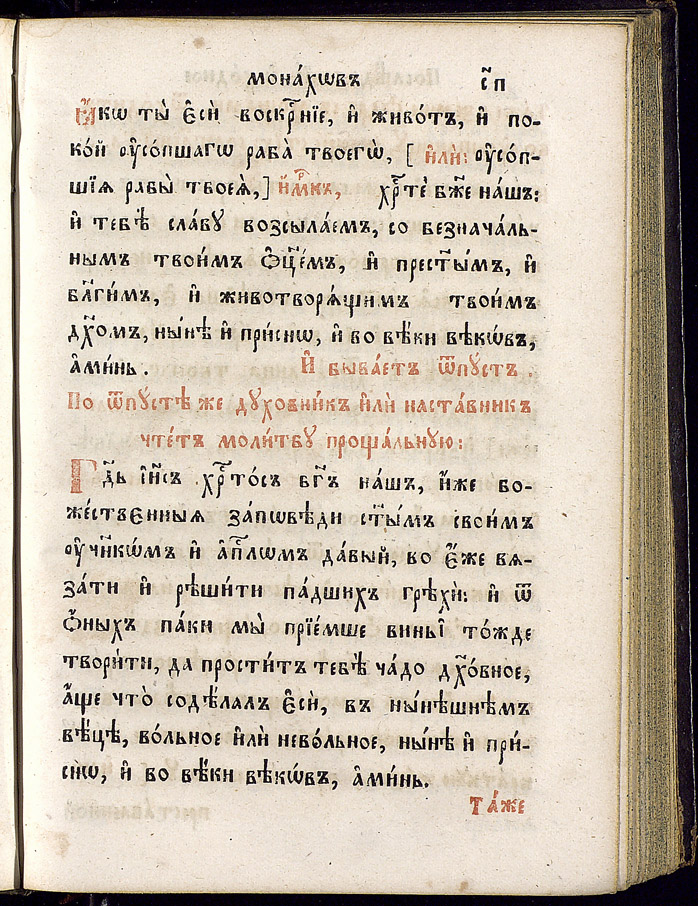 мона́хѡвъ      с҃п
Ꙗ҆́кѡ ты̀ є҆сѝ воскрⷭ҇нїе, и҆ живо́тъ, и҆ по-
ко́й ᲂу҆со́пшагѡ раба̀ твоегѡ̀, [ и҆лѝ: ᲂу҆со́п-
шїѧ рабы̀ твоеѧ̀,] и҆́мⷬ҇къ, хрⷭ҇тѐ бж҃е на́шъ:
и҆ тебѣ̀ сла́вꙋ возсыла́емъ, со безнача́ль-
нымъ твои́мъ ѻ҆ц҃е́мъ, и҆ прест҃ы́мъ, и҆
бл҃ги́мъ, и҆ животворѧ́щимъ твои́мъ
дх҃омъ, ны́нѣ и҆ при́снѡ, и҆ во вѣ́ки вѣкѡ́въ,
а҆ми́нь. И҆ быва́етъ ѿпꙋ́стъ.
По ѿпꙋ́стѣ же дꙋхо́вникъ и҆лѝ наста́вникъ
чте́тъ моли́твꙋ проща́льнꙋю:
Гдⷭ҇ь і҆и҃съ хрⷭ҇то́съ бг҃ъ на́шъ, и҆́же бо-
же́ственныѧ за́пѡвѣди ст҃ы́мъ свои́мъ
ᲂу҆чн҃кѡ́мъ и҆ а҆пⷭ҇лѡмъ да́вый, во є҆́же вѧ-
за́ти и҆ рѣши́ти па́дшихъ грѣхѝ: и҆ ѿ
ѻ҆́ныхъ па́ки мы̀ прїе́мше вины̀ то́жде
твори́ти, да прости́тъ тебѣ̀ ча́до дх҃о́вное,
а҆́ще что̀ содѣ́лалъ є҆сѝ, въ ны́нѣшнѣмъ
вѣ́цѣ, во́льное и҆лѝ нево́льное, ны́нѣ и҆ при́-
снѡ, и҆ во вѣ́ки вѣкѡ́въ, а҆ми́нь.
Та́же